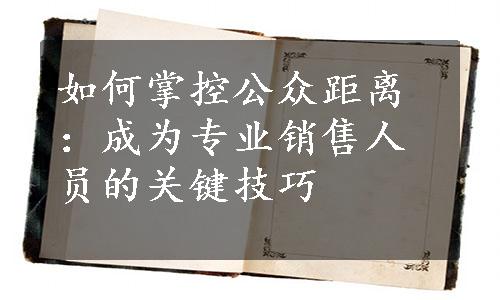 如何掌控公众距离
：成为专业销售人
员的关键技巧